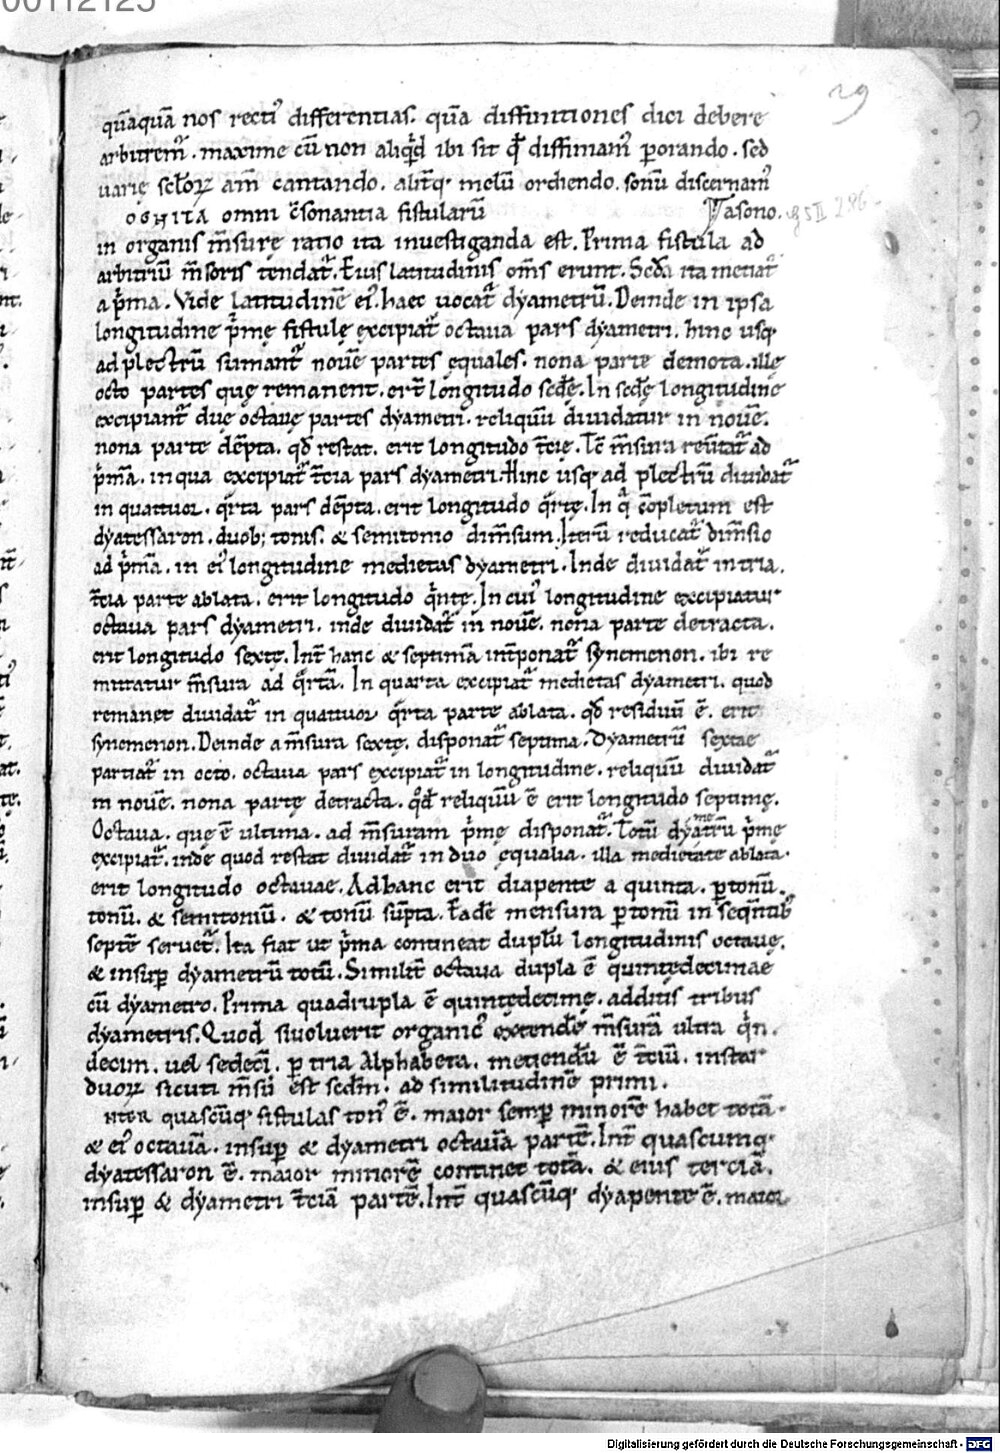 00112125
29
quãquã nos recti᾽ differentias. quã diffinitiones dici debere
arbitrem᾽. maxime cũ non aliqͥd ibi sit qđ diffiniam᾽ ꝑorando. sed
uarię sclorꝝ am̃ cantando. alitꝙ melũ ordiendo. sonũ discernam᾽
OGNITA omni c̃sonantia fistularũ
in organis m̃surę ratio ita inuestiganda est. Prima fistula ad
arbitriũ m̃soris tendat᾽. Eius latitudinis om̃s erunt. Scđa ita metiat᾽
a pͥma. Vide latitudinẽ ei᾽. haec uocat᾽ dyametrũ. Deinde in ipsa
longitudine pͥmę fistulę excipiat᾽ octaua pars dyametri. hinc usꝙ
ad plectrũ sumant᾽ nouẽ partes ęquales. nona parte demota. illę
octo partes quę remanent. ert̃ longitudo scđę. In scđę longitudine
excipiant᾽ duę octauę partes dyametri. reliquũ diuidatur in nouẽ.
nona parte dẽpta. qđ restat. erit longitudo t̃cię. Tc̃ m̃sura reũtat᾽ ad
pͥmã. in qua excipiat᾽ t̃cia pars dyametri. Hinc usꝙ ad plectrũ diuidat᾽
in quattuor. qͣrta pars dẽpta. erit longitudo qͣrtę. In qͣ cõpletum est
dyatessaron. duob; tonis. & semitonio dim̃sum. Iterũ reducat᾽ dim̃sio
ad pͥmã. in ei᾽ longitudine medietas dyametri. Inde diuidat᾽ in tria.
t̃cia parte ablata. erit longitudo qͥntę. In cui᾽ longitudine excipiatur
octaua pars dyametri. inde diuidat᾽ in nouẽ. nona parte detracta.
erit longitudo sextę. Int̃ hanc & septimã int̃ponat᾽ synemenon. ibi re
mittatur m̃sura ad qͣrtã. In quarta excipiat᾽ medietas dyametri. quod
remanet diuidat᾽ in quattuor qͣrta parte ablata. qđ residuũ ẽ. erit
synemenon. Deinde a m̃sura sextę. disponat᾽ septima. Dyametrũ sextae
partiat᾽ in octo. octaua pars excipiat᾽ in longitudine. reliquũ diuidat᾽
in nouẽ. nona partę detracta. qđ reliquũ ẽ erit longitudo septimę.
Octaua. quę ẽ ultima. ad m̃suram pͥmę disponat᾽. Totũ dyametrũ pͥmę
excipiat᾽. inde quod restat diuidat᾽ in duo ęqualia. illa medietate ablata.
erit longitudo octauae. Ad hanc erit diapente a quinta. ꝑ tonũ.
tonũ. & semitoniũ. & tonũ sũpta. Eadẽ mensura ꝑ tonũ in seqñtib᾽
septẽ seruet᾽. Ita fiat ut pͥma contineat duplũ longitudinis octauę.
& insuꝑ dyametrũ totũ. Similit̃ octaua dupla ẽ quintędecimae
cũ dyametro. Prima quadrupla ẽ quintędecimę. additis tribus
dyametris. Quod si uoluerit organic᾽ extendẽ m̃surã ultra qͥn.
decim. uel sedecĩ. ꝑ tria Alphabeta. metiendũ ẽ t̃ciũ. instar
duorꝝ sicuti m̃sũ est scđm. ad similitudinẽ primi.
NTER quascũꝙ fistulas ton᾽ ẽ. maior semꝑ minorẽ habet totã.
& ei᾽ octauã. insuꝑ & dyametri octauã partẽ. Int̃ quascumꝙ
dyatessaron ẽ. maior minorẽ continet totã. & eius terciã.
insuꝑ & dyametri t̃ciã partẽ. Int̃ quascũꝙ dyapente ẽ. maior
Digitalisierung gefördert durch die Deutsche Forschungsgemeinschaft - DFG